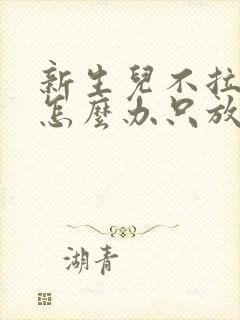 新生兒不拉
怎麼办只放
湖青